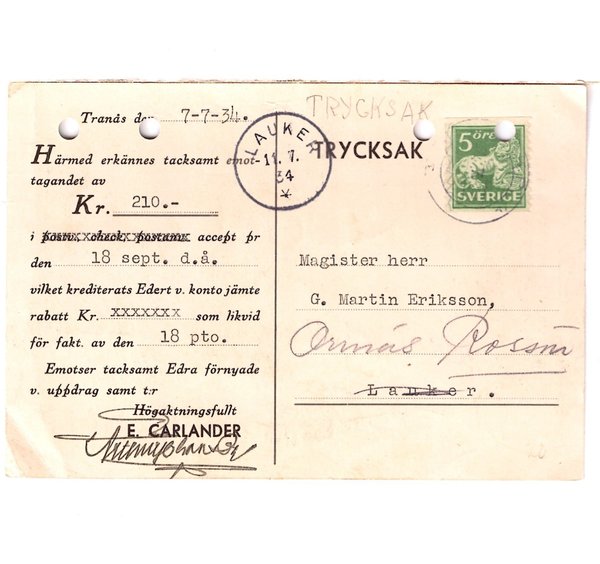 Tranås den 7-7-34.
Härmed erkännes tacksamt emot-
tagandet av
Kr. 210.-
i postv, check, postanv accept pr
den 18 sept. d.å.
vilket krediterats Edert v. konto jämte
rabatt Kr. xxxxxxx som likvid
för fakt. av den 18 pto.
Emotser tacksamt Edra förnyade
v. uppdrag samt t:r
Högaktningsfullt
E. CARLANDER
LAUKER
11. 7.
34
TRYCKSAK
TRYCKSAK
5 öre
SVERIGE
Magister herr
G. Martin Eriksson,
Lauker.